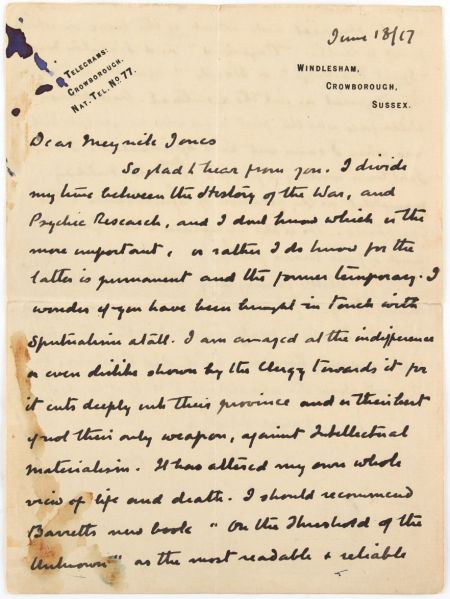 June 18/17
TELEGRAMS:
CROWBOROUGH.
NAT. TEL. NO. 77.
WINDLESHAM,
CROWBOROUGH,
SUSSEX.
Dear Meyrick Jones
So glad to hear from you. I divide
my time between the History of the War, and
Psychic Research, and I dont know which is the
more important, or rather I do know for the
latter is permanent and the former temporary. I
wonder if you have been brought in touch with
Spiritualism at all. I am amazed at the indifference
or even dislike shown by the Clergy towards it for
it cuts deeply into their province and is their best
if not their only weapon, against Intellectual
materialism. It has altered my own whole
view of life and death. I should recommend
Barretts new book "On the Threshold of the
Unknown" as the most readable & reliable